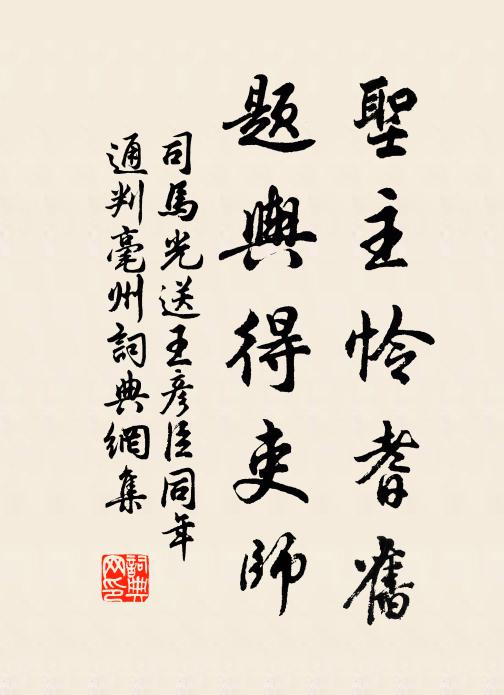 聖主怜耆舊
題輿得吏師
司馬光送王彦臣同年
通判亳州詞典網集
詞典
网印